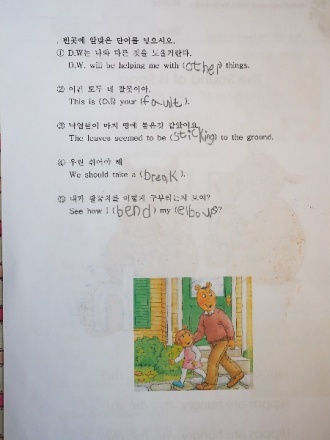 . 빈곳에 알맞은 단어를 넣으시오.
① D.W는 나와 다른 것을 도울거란다.
D.W. will be helping me with (other) things.
② 이건 모두 네 잘못이야.
This is (D.I) your (fault).
③ 낙엽들이 마치 땅에 붙은것 같았어요.
The leaves seemed to be (sticking) to the ground.
④ 우린 쉬어야 해
We should take a (break).
⑤ 내가 팔꿈치를 어떻게 구부리는지 보여?
See how I (bend) my (elbows?